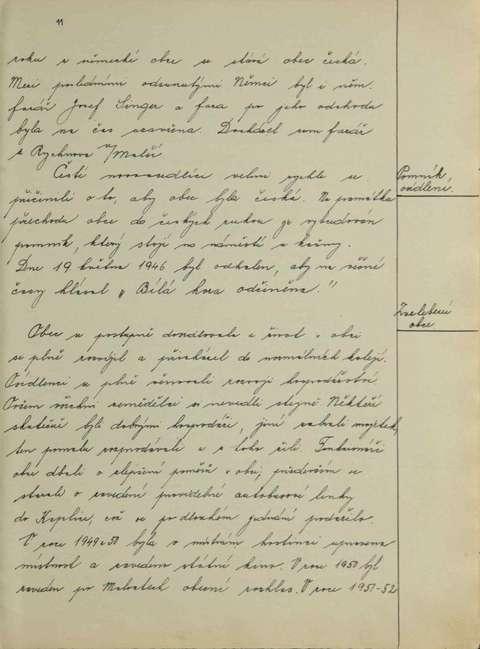 11
roku z německé obce se stává obec česká.
Mezi posledními odsunutými Němci byl i něm.
farář Josef Singer a fara po jeho odchodu
byla na čas uzavřena. Docházel sem farář
z Rychnova n/Malší
Čeští novousedlíci velmi rychle se
přičinili o to, aby obec byla česká. Na památku
přechodu obce do českých rukou je vybudován
pomník, který stojí na náměstí u kašny.
Pomník,
osídlení.
Dne 19 května 1946 byl odhalen, aby na věčné
časy hlásal „Bílá hora odčiněna."
Zvelebení
obce
Obec se postupně dosidlovala a život v obci
se plně rozvíjel a přicházel do normálních kolejí.
Osídlenci se plně věnovali rozvoji hospodářství.
Ovšem všichni zemědělci si nevedli stejně. Někteří
skutečně byli dobrými hospodáři, jiní zabrali majetek,
ten pomalu rozprodávali a z toho žili. Funkcionáři
obce dbali o zlepšení poměrů v obci, především se
starali o zavedení pravidelné autobusové linky
do Kaplice, což se po dlouhém jednání podařilo.
V roce 1949 a 50 byla v místním hostinci upravena
místnost a zavedeno státní kino. V roce 1950 byl
zaveden po Malontech obecní rozhlas. V roce 1951-52